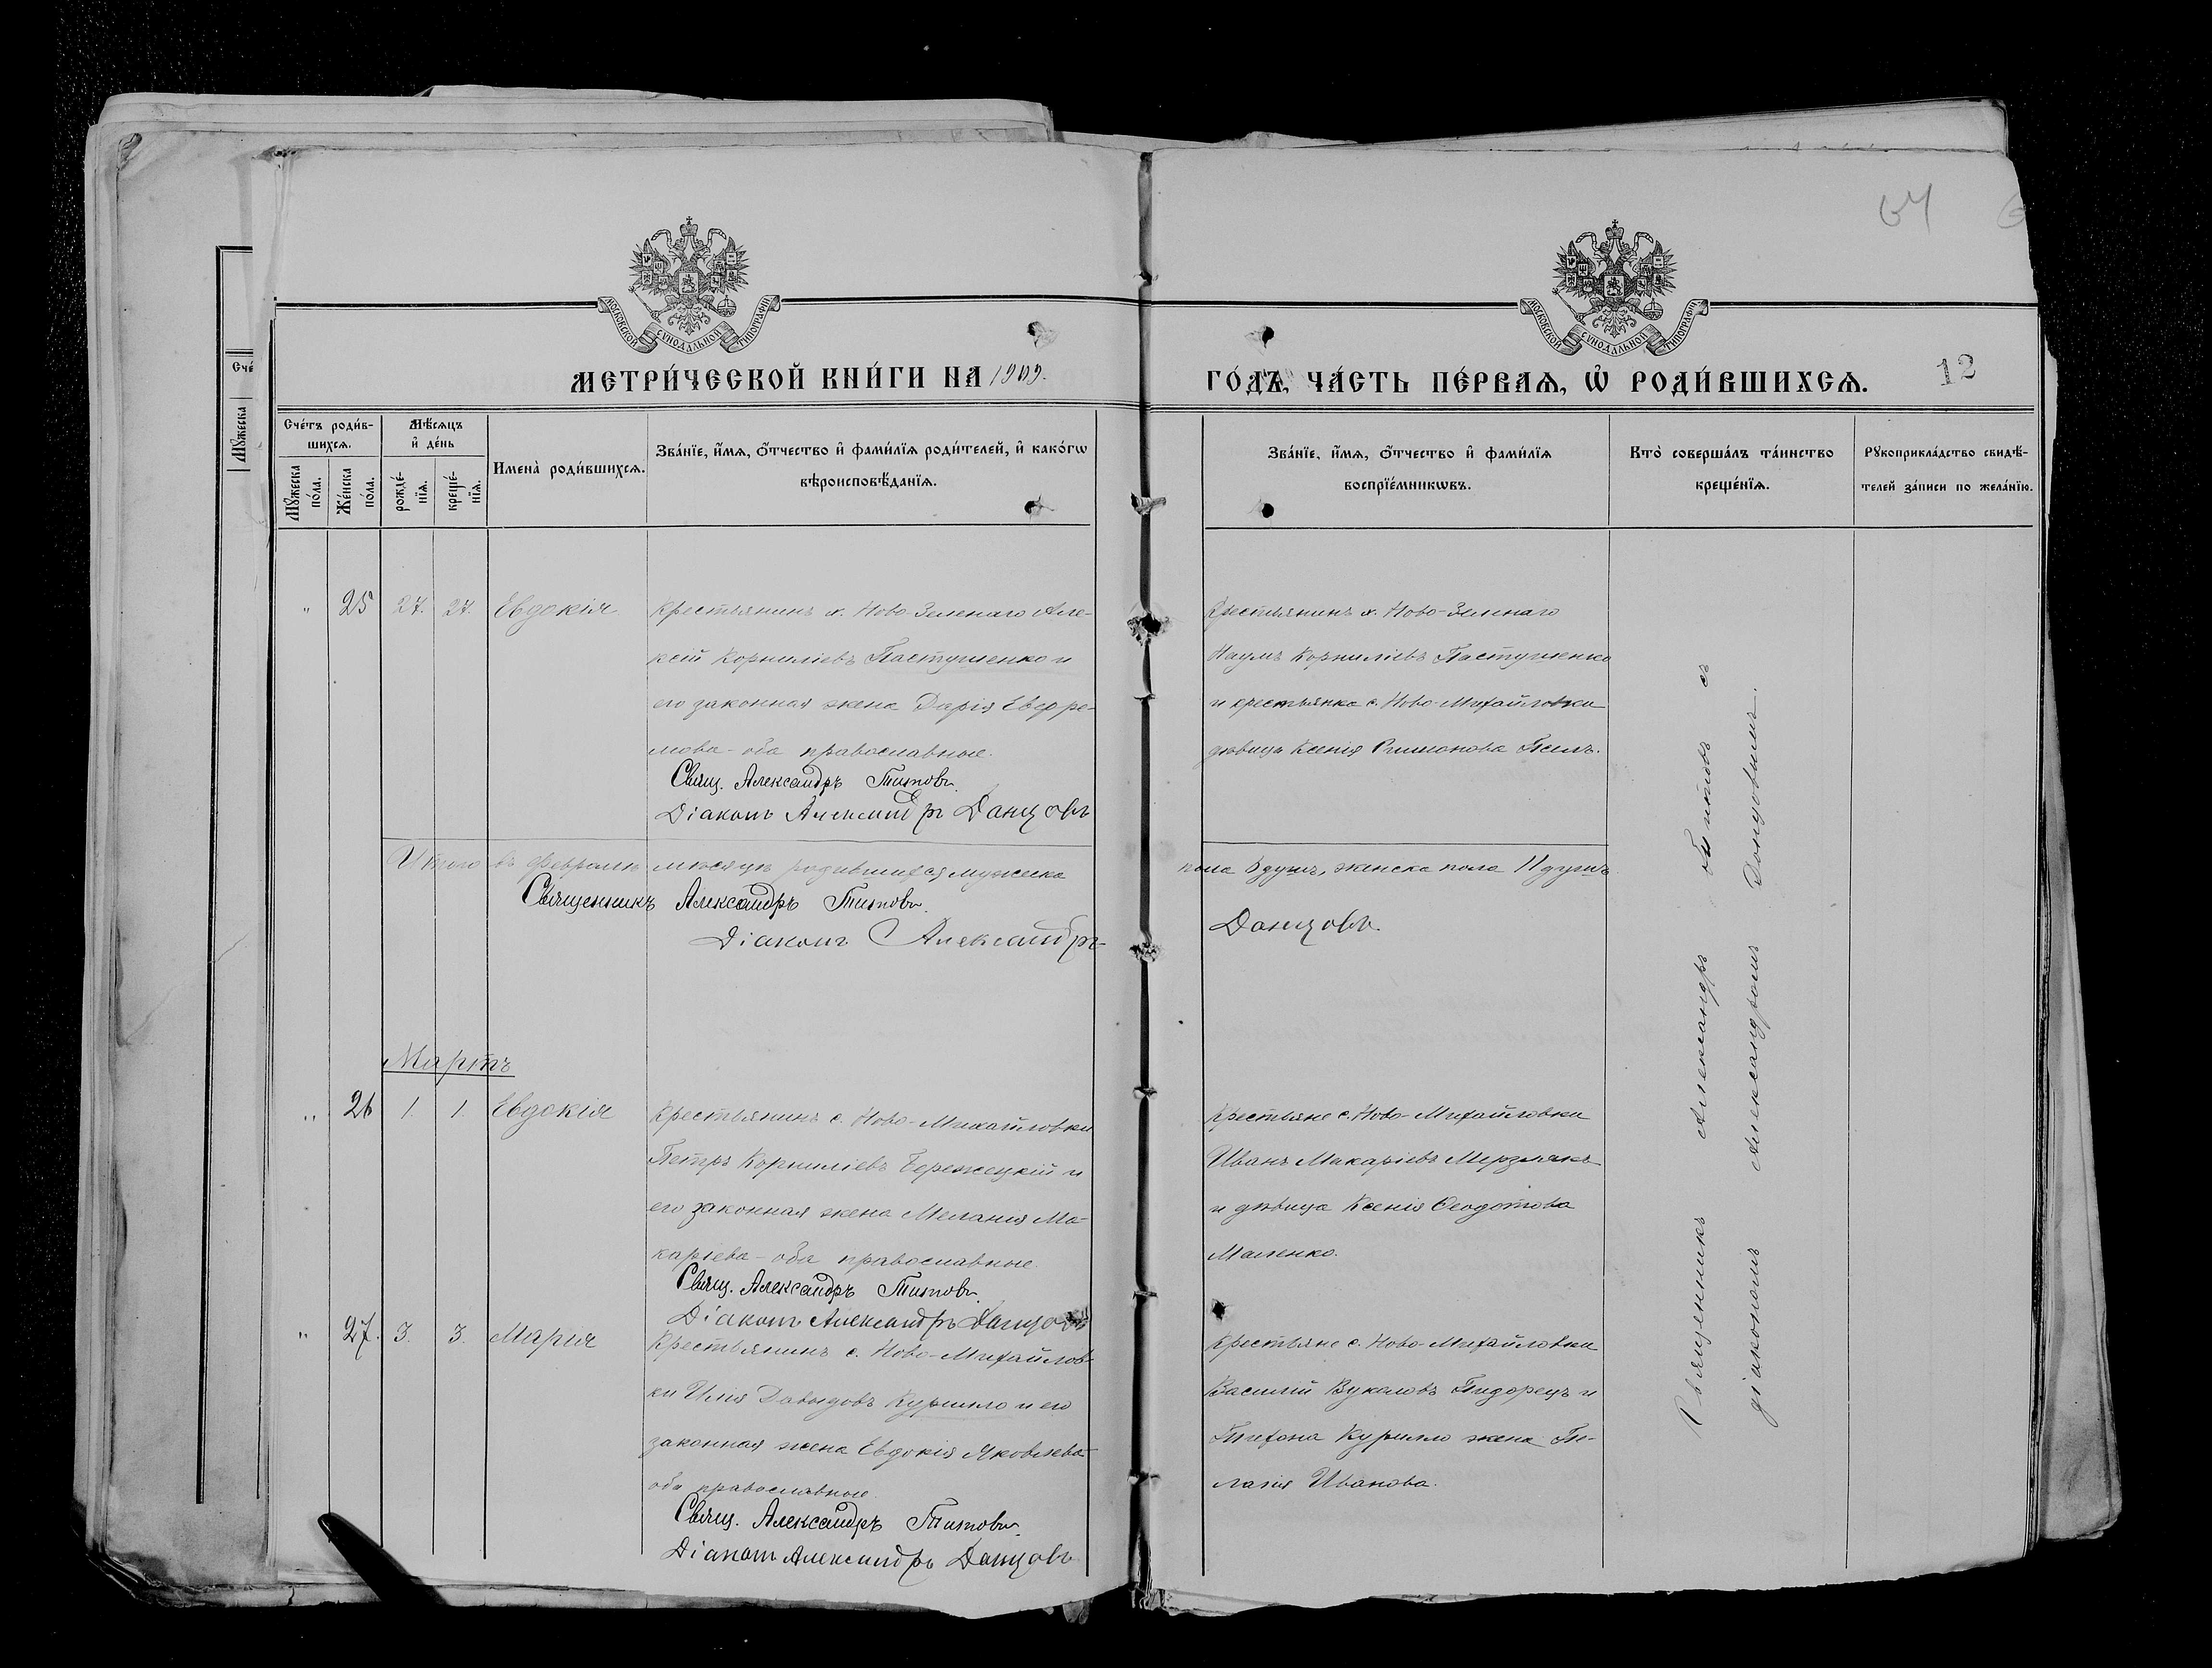 64
МОСКОВСКОЙ СѴНОДАЛЬНОЙ ТИПОГРАФІИ
МОСКОВСКОЙ СѴНОДАЛЬНОЙ ТИПОГРАФІИ
МЕТРИ́ЧЕСКОЙ КНИ́ГИ НА 1909.
ГО́ДЪ, ЧА́СТЬ ПЕ́РВАѦ, Ѡ҆ РОДИ́ВШИХСѦ.
12
Сче́тъ роди́в-
шихсѧ.
Мꙋжеска
по́ла.
Же́нска
по́ла.
Мѣ́сѧцъ
и҆ де́нь
рожде́-
нїѧ.
креще́-
нїѧ.
Имена̀ роди́вшихсѧ.
Зва́нїе, и҆́мѧ, ѻ҆́тчество и҆ фами́лїѧ роди́телей, и҆ како́гѡ
вѣроисповѣ́данїѧ.
Зва́нїе, и҆́мѧ, ѻ҆́тчество и҆ фами́лїѧ
воспрїе́мникѡвъ.
Кто̀ соверша́лъ та́инство
креще́нїѧ.
Рꙋкоприкла́дство свидѣ́-
телей за́писи по жела́нїю.
Сче́
Мꙋжеска
" 25 27. 27. Евдокія
Крестьянинъ х. Ново-Зеленаго Але-
ксій Корниліевъ Пастушенко и
его законная жена Дарія Евфре-
мова - оба православные.
Свящ. Александръ Титовъ.
Діаконъ Александръ Данцовъ
Крестьянинъ х. Ново-Зеленаго
Наумъ Корниліевъ Пастушенко
и крестьянка с. Ново-Михайловки
дѣвица Ксенія Симонова
Итого въ февралѣ мѣсяцѣ родившихся мужеска
пола 8 душъ, женска пола 11 душъ
Священникъ Александръ Титовъ.
Діаконъ Александръ
Данцовъ.
Мартъ
" 26 1. 1. Евдокія
Крестьянинъ с. Ново-Михайловки
Петръ Корниліевъ Бережецкій и
его законная жена Меланія Ма-
каріева - оба православные.
Свящ. Александръ Титовъ.
Діаконъ Александръ Данцовъ
Крестьяне с. Ново-Михайловки
Иванъ Макаріевъ Мерзлякъ
и дѣвица Ксенія Ѳеодотова
Маленко.
" 27. 3. 3. Марія
Крестьянинъ с. Ново-Михайлов-
ки Илія Давыдовъ Курилло и его
законная жена Евдокія Яковлева
оба православные.
Свящ. Александръ Титовъ.
Діаконъ Александръ Данцовъ
Крестьяне с. Ново-Михайловки
Василій Вуколовъ Пидорецъ и
Тихона Курилло жена Пе-
лагія Иванова.
Священникъ Александръ Титовъ съ
діакономъ Александромъ Донцовымъ.